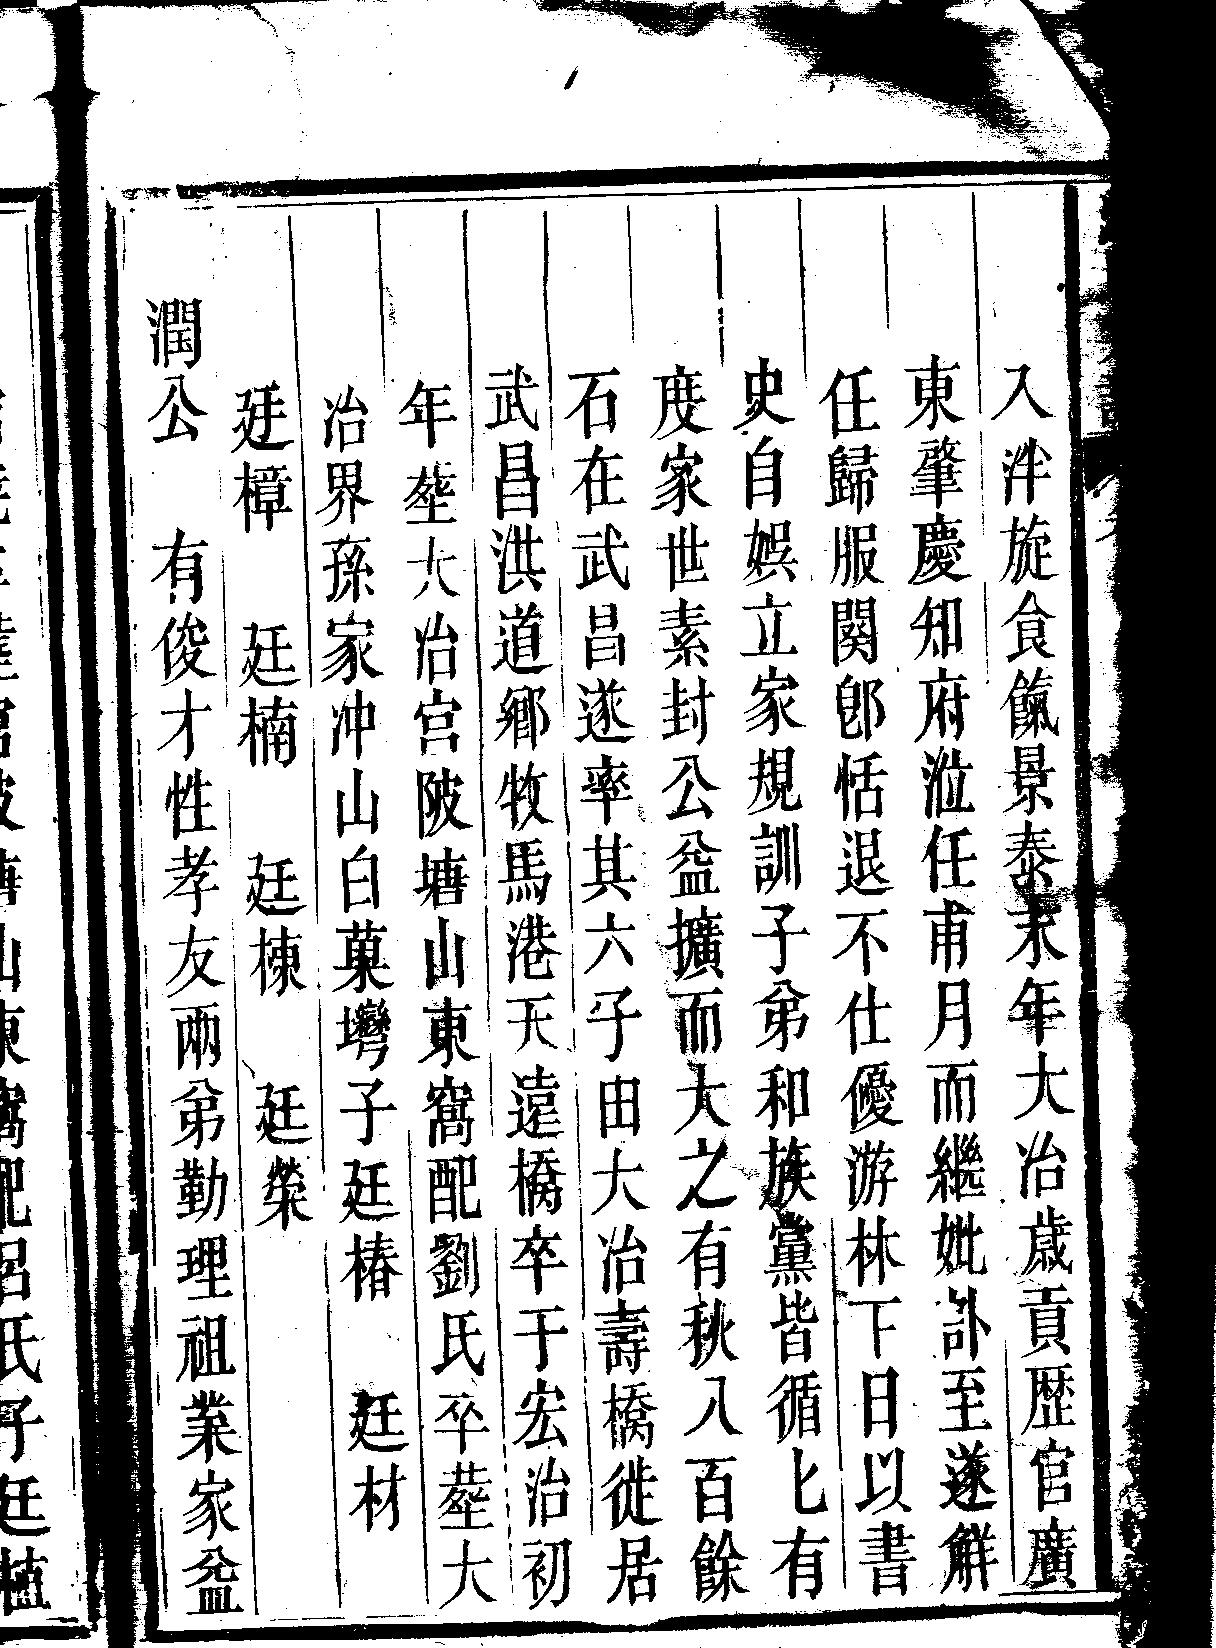 入泮旋食餼景泰末年大冶歲貢歷官廣
東肇慶知府涖任甫月而繼妣訃至遂解
任歸服闋卽恬退不仕優游林下日以書
史自娛立家規訓子弟和族黨皆循匕有
度家世素封公益擴而大之有秋八百餘
石在武昌遂率其六子由大冶壽橋徙居
武昌洪道鄉牧馬港天遠橋卒于宏治初
年塟大冶宮陂塘山東窩配劉氏卒塟大
冶界孫家冲山白菓灣子廷椿　廷材
廷樟　廷楠　廷棟　廷榮
潤公　有俊才性孝友兩弟勤理祖業家益
塘山東窩配呂氏子廷植